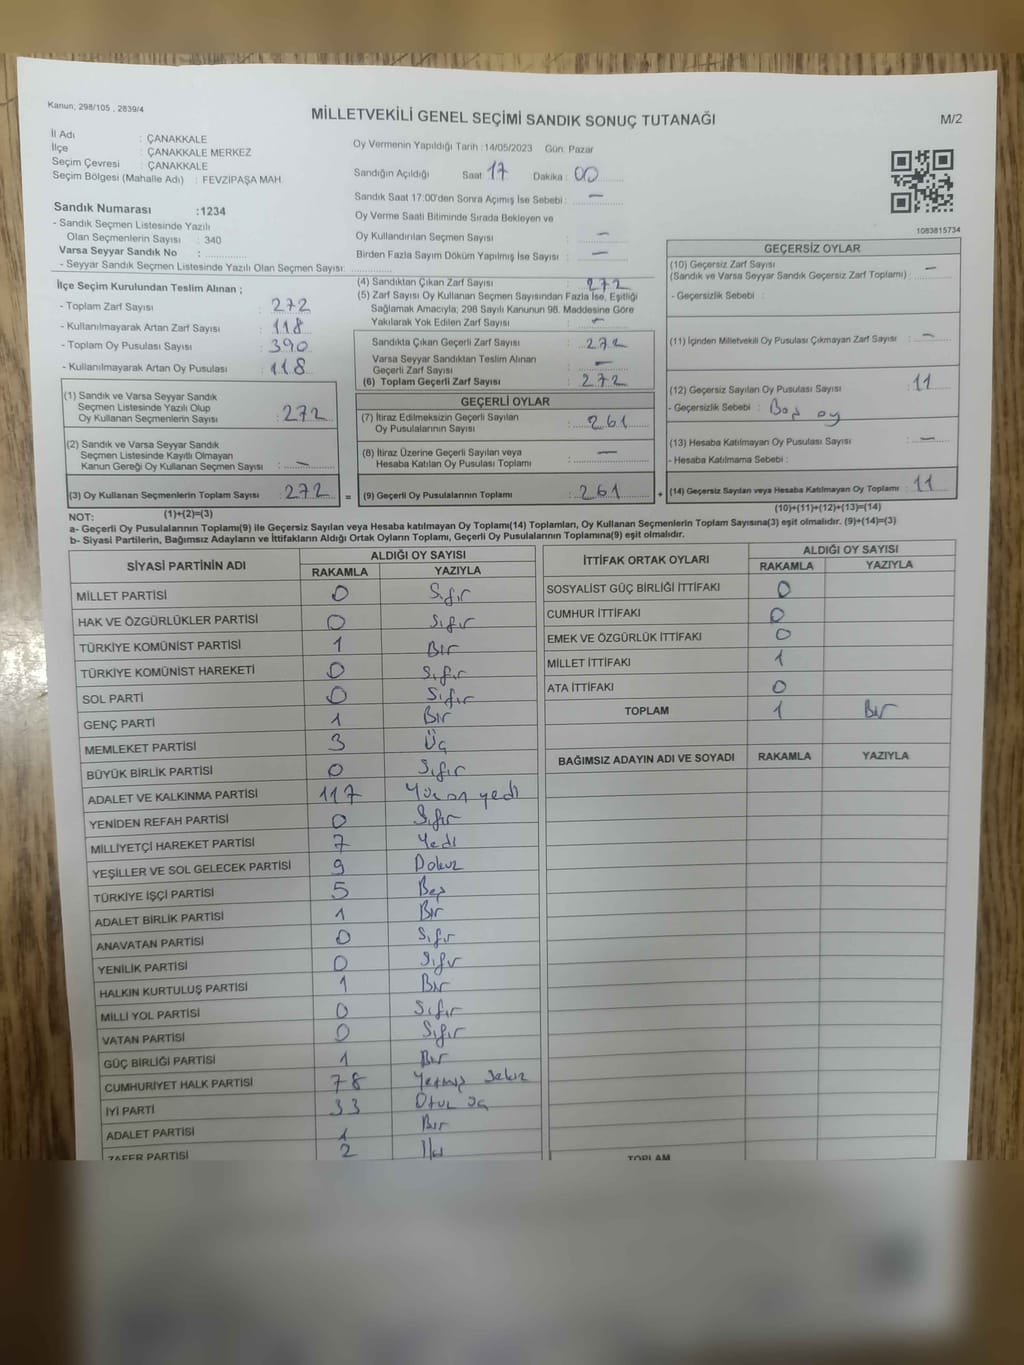 Kanun; 298/105 , 2839/4
MİLLETVEKİLİ GENEL SEÇİMİ SANDIK SONUÇ TUTANAĞI
M/2
İl Adı : ÇANAKKALE
İlçe : ÇANAKKALE MERKEZ
Seçim Çevresi : ÇANAKKALE
Seçim Bölgesi (Mahalle Adı) : FEVZİPAŞA MAH.
Sandık Numarası :1234
- Sandık Seçmen Listesinde Yazılı
Olan Seçmenlerin Sayısı : 340
Varsa Seyyar Sandık No :
- Seyyar Sandık Seçmen Listesinde Yazılı Olan Seçmen Sayısı:
İlçe Seçim Kurulundan Teslim Alınan ;
- Toplam Zarf Sayısı : 272
- Kullanılmayarak Artan Zarf Sayısı : 118
- Toplam Oy Pusulası Sayısı : 390
- Kullanılmayarak Artan Oy Pusulası : 118
(1) Sandık ve Varsa Seyyar Sandık
Seçmen Listesinde Yazılı Olup
Oy Kullanan Seçmenlerin Sayısı : 272
(2) Sandık ve Varsa Seyyar Sandık
Seçmen Listesinde Kayıtlı Olmayan
Kanun Gereği Oy Kullanan Seçmen Sayısı : —
(3) Oy Kullanan Seçmenlerin Toplam Sayısı : 272
Oy Vermenin Yapıldığı Tarih :14/05/2023 Gün: Pazar
Sandığın Açıldığı Saat : 17 Dakika : 00
Sandık Saat 17:00'den Sonra Açımış İse Sebebi : —
Oy Verme Saati Bitiminde Sırada Bekleyen ve
Oy Kullandırılan Seçmen Sayısı : —
Birden Fazla Sayım Döküm Yapılmış İse Sayısı : —
(4) Sandıktan Çıkan Zarf Sayısı : 272
(5) Zarf Sayısı Oy Kullanan Seçmen Sayısından Fazla İse, Eşitliği
Sağlamak Amacıyla; 298 Sayılı Kanunun 98. Maddesine Göre
Yakılarak Yok Edilen Zarf Sayısı : —
Sandıkta Çıkan Geçerli Zarf Sayısı : 272
Varsa Seyyar Sandıktan Teslim Alınan
Geçerli Zarf Sayısı : —
(6) Toplam Geçerli Zarf Sayısı : 272
GEÇERLİ OYLAR
(7) İtiraz Edilmeksizin Geçerli Sayılan
Oy Pusulalarının Sayısı : 261
(8) İtiraz Üzerine Geçerli Sayılan veya
Hesaba Katılan Oy Pusulası Toplamı : —
= (9) Geçerli Oy Pusulalarının Toplamı : 261
1083815734
GEÇERSİZ OYLAR
(10) Geçersiz Zarf Sayısı
(Sandık ve Varsa Seyyar Sandık Geçersiz Zarf Toplamı) : —
- Geçersizlik Sebebi :
(11) İçinden Milletvekili Oy Pusulası Çıkmayan Zarf Sayısı : —
(12) Geçersiz Sayılan Oy Pusulası Sayısı : 11
- Geçersizlik Sebebi : Boş oy
(13) Hesaba Katılmayan Oy Pusulası Sayısı : —
- Hesaba Katılmama Sebebi :
+ (14) Geçersiz Sayılan veya Hesaba Katılmayan Oy Toplamı : 11
NOT: (1)+(2)=(3)
(10)+(11)+(12)+(13)=(14)
a- Geçerli Oy Pusulalarının Toplamı(9) ile Geçersiz Sayılan veya Hesaba katılmayan Oy Toplamı(14) Toplamları, Oy Kullanan Seçmenlerin Toplam Sayısına(3) eşit olmalıdır. (9)+(14)=(3)
b- Siyasi Partilerin, Bağımsız Adayların ve İttifakların Aldığı Ortak Oyların Toplamı, Geçerli Oy Pusulalarının Toplamına(9) eşit olmalıdır.
SİYASİ PARTİNİN ADI ALDIĞI OY SAYISI
RAKAMLA YAZIYLA
MİLLET PARTİSİ 0 Sıfır
HAK VE ÖZGÜRLÜKLER PARTİSİ 0 Sıfır
TÜRKİYE KOMÜNİST PARTİSİ 1 Bir
TÜRKİYE KOMÜNİST HAREKETİ 0 Sıfır
SOL PARTİ 0 Sıfır
GENÇ PARTİ 1 Bir
MEMLEKET PARTİSİ 3 Üç
BÜYÜK BİRLİK PARTİSİ 0 Sıfır
ADALET VE KALKINMA PARTİSİ 117 Yüz on yedi
YENİDEN REFAH PARTİSİ 0 Sıfır
MİLLİYETÇİ HAREKET PARTİSİ 7 Yedi
YEŞİLLER VE SOL GELECEK PARTİSİ 9 Dokuz
TÜRKİYE İŞÇİ PARTİSİ 5 Beş
ADALET BİRLİK PARTİSİ 1 Bir
ANAVATAN PARTİSİ 0 Sıfır
YENİLİK PARTİSİ 0 Sıfır
HALKIN KURTULUŞ PARTİSİ 1 Bir
MİLLİ YOL PARTİSİ 0 Sıfır
VATAN PARTİSİ 0 Sıfır
GÜÇ BİRLİĞİ PARTİSİ 1 Bir
CUMHURİYET HALK PARTİSİ 78 Yetmiş sekiz
İYİ PARTİ 33 Otuz üç
ADALET PARTİSİ 1 Bir
ZAFER PARTİSİ 2 İki
İTTİFAK ORTAK OYLARI ALDIĞI OY SAYISI
RAKAMLA YAZIYLA
SOSYALİST GÜÇ BİRLİĞİ İTTİFAKI 0
CUMHUR İTTİFAKI 0
EMEK VE ÖZGÜRLÜK İTTİFAKI 0
MİLLET İTTİFAKI 1
ATA İTTİFAKI 0
TOPLAM 1 Bir
BAĞIMSIZ ADAYIN ADI VE SOYADI RAKAMLA YAZIYLA
TOPLAM